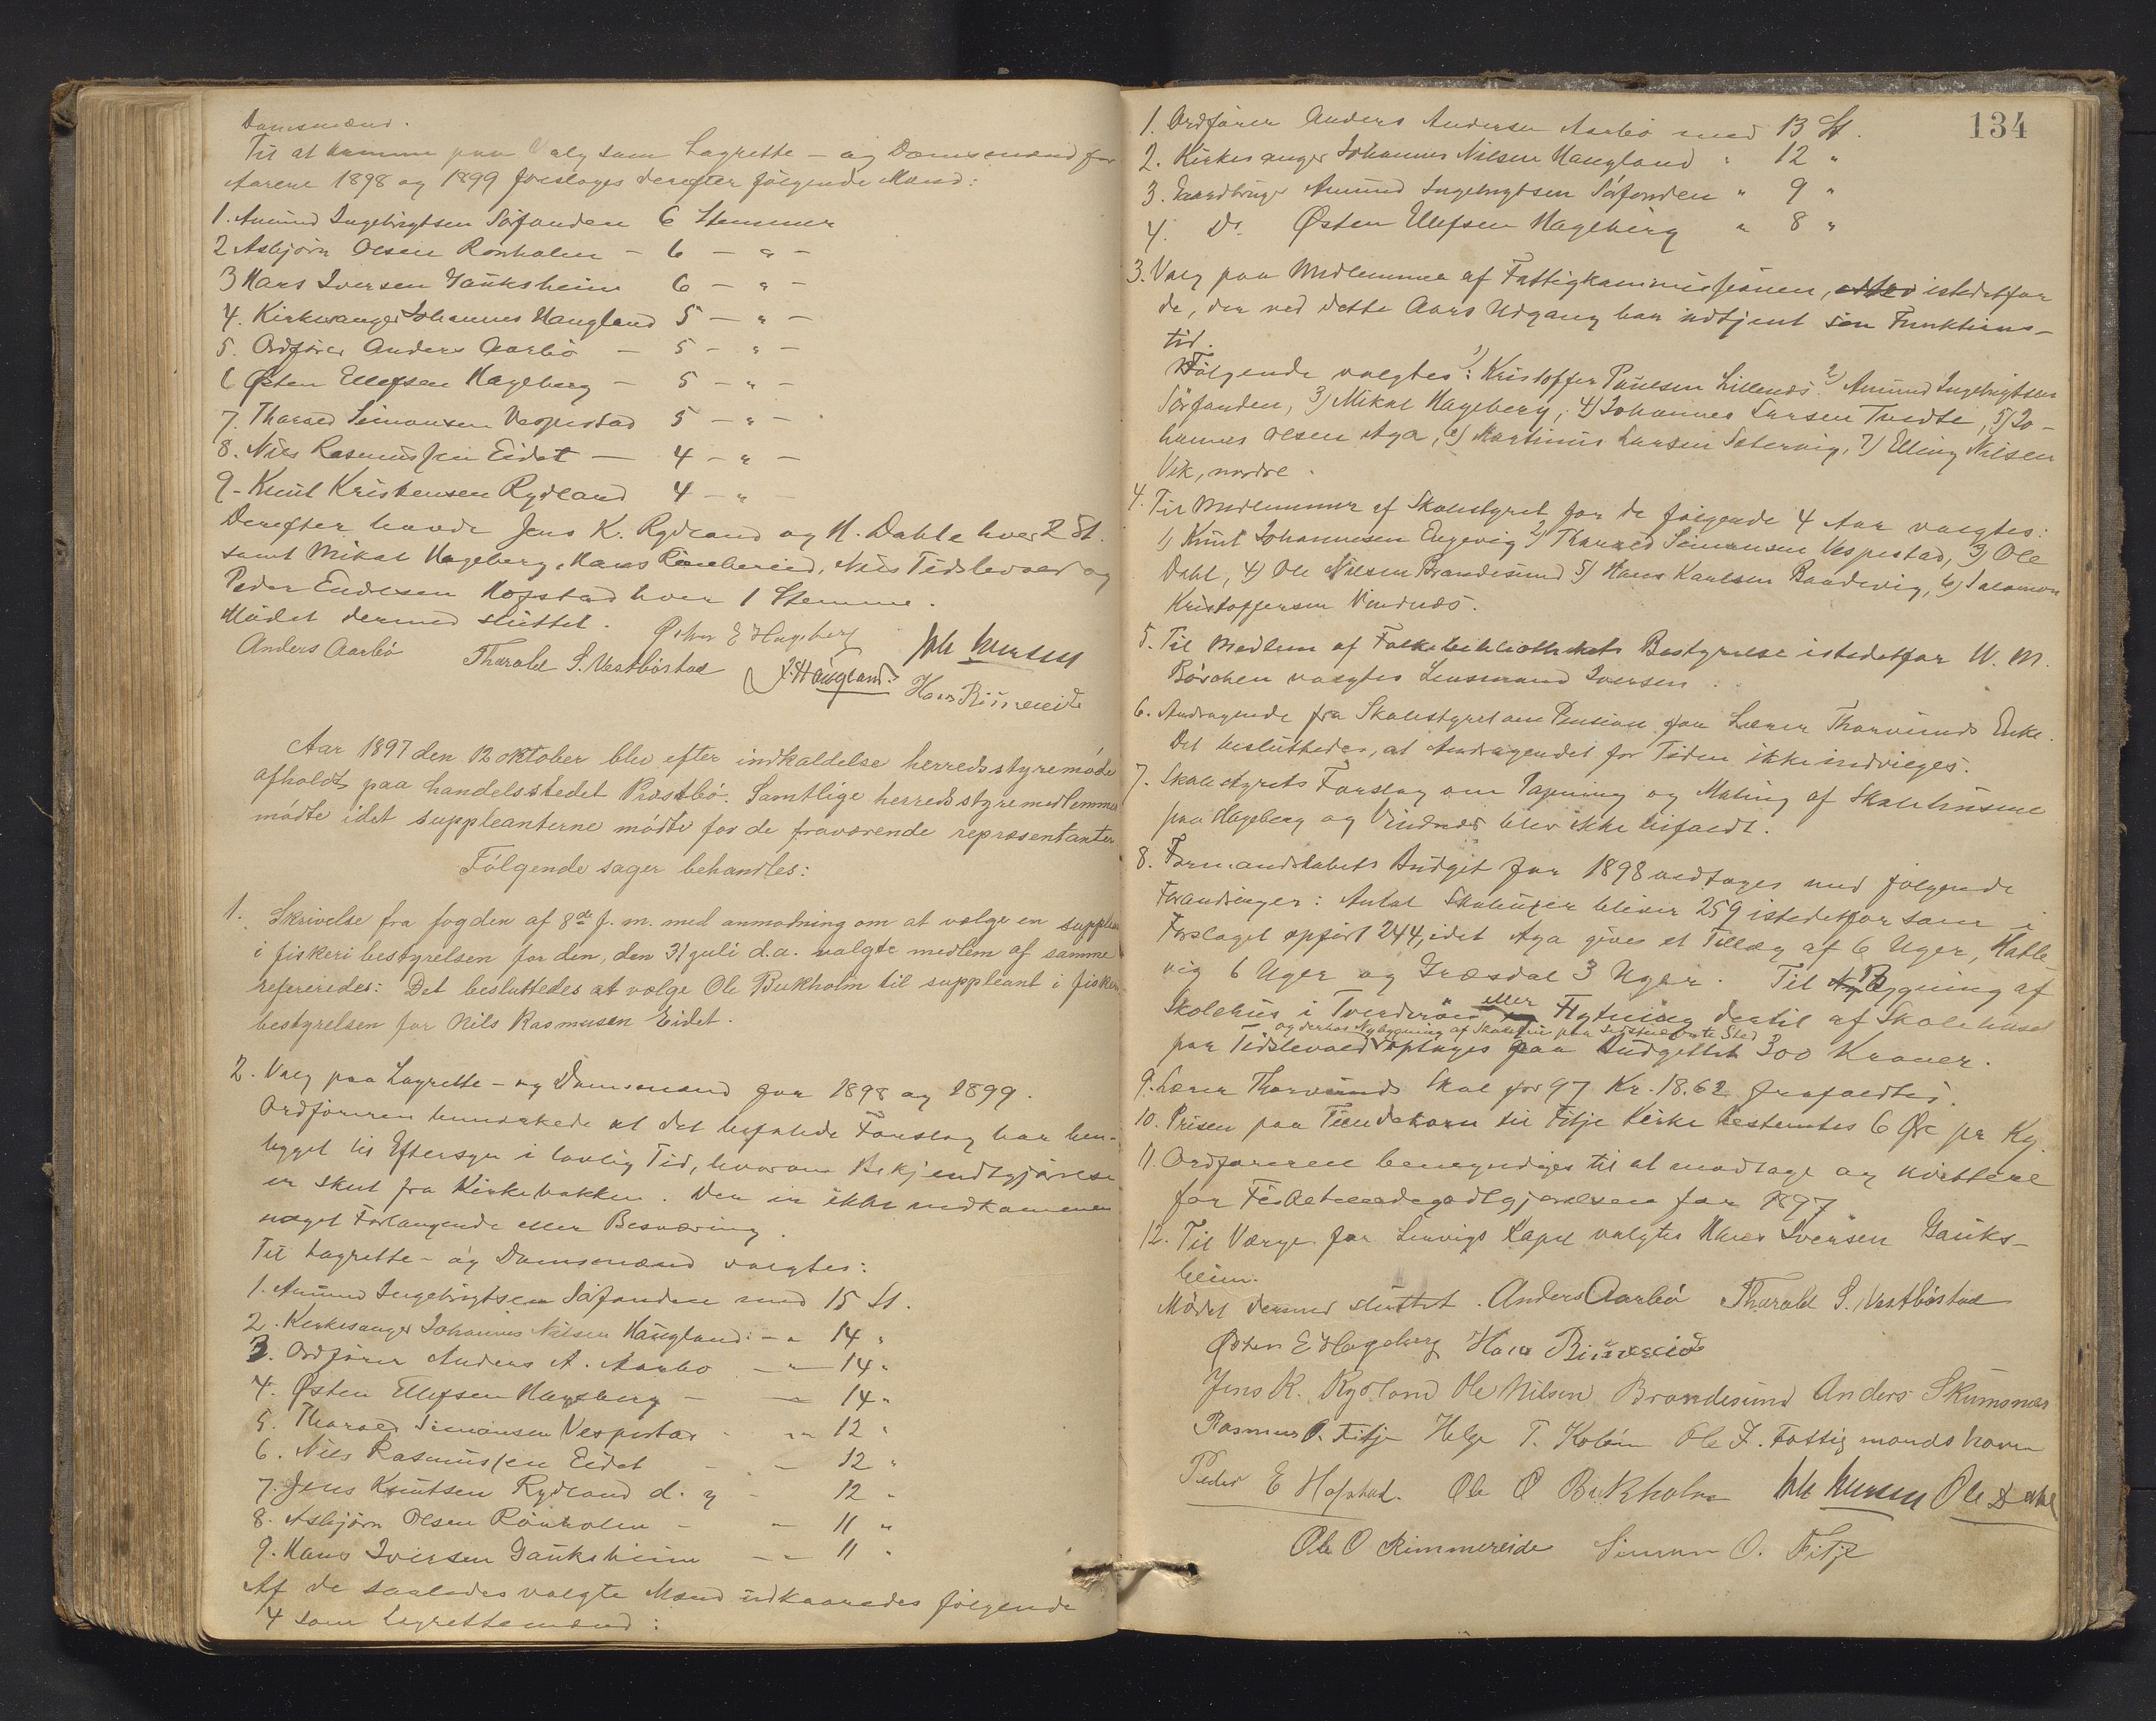 Domsmænd.
Til at komme paa Valg som Lagrette- og Domsmænd for
Aarene 1898 og 1899 foreslages derefter følgende Mænd:
1. Amund Ingebrigtsen Sörfonden 6 Stemmer
2 Asbjörn Olsen Rönholm – 6 – " –
3 Hans Iversen Gauksheim 6 – " –
4. Kirkesanger Johannes Haugland 5 – " –
5. Ordförer Anders Aarbö – 5 – " –
6 Østen Ellefsen Hageberg – 5 – " –
7. Tharald Simonsen Vespestad 5 – " –
8. Nils Rasmussen Eidet – 4 – " –
9. Knut Kristensen Rydland 4 – " –
Derefter havde Jens K. Rydland og N. Dahle hver 2 St.
samt Mikal Hageberg, Hans Rimbereid, Nils Tidslevold og
Peder Endresen Hofstad hver 1 Stemme.
Mödet dermed sluttet.
Østen E Hageberg
Anders Aarbö Tharald S. Vestböstad J. Haugland. Hans Rimereide
Aar 1897 den 12 oktober blev efter indkaldelse herredsstyremöde
afholdt paa handelsstedet Præstbö. Samtlige herredsstyremedlemmer
mödte idet suppleanterne mödte for de fraværende repræsentanter
Følgende sager behandles:
1. Skrivelse fra fogden af 8de f. m. med anmodning om at vælge en supplea
i fiskeri bestyrelsen for den, den 31 juli d.a. valgte medlem af samme
refereredes: Det besluttedes at vælge Ole Bukholm til suppleant i fisker
bestyrelsen for Nils Rasmusen Eidet.
2. Valg paa Lagrette- og Domsmænd for 1898 og 1899.
Ordföreren bemærkede at det befalede Forslag har hen-
ligget til Eftersyn i lovlig Tid, hvorom Bekjendtgjörelse
er sket fra Kirkebakken. Der er ikke indkommen
noget Forlangende eller Besværing.
Til Lagrette- og Domsmænd valgtes:
1. Amund Ingebrigtsen Sörfonden med 15 St.
2. Kirkesanger Johannes Nilsen Haugland – " 14 "
3. Ordförer Anders A. Aarbö – " – 14 "
4. Østen Ellefsen Hageberg – – 14 "
5. Tharald Simonsen Vespestad – " 12 "
6. Nils Rasmussen Eidet – – 12 "
7. Jens Knutsen Rydland d. y – 12 "
8. Asbjörn Olsen Rönholm – – 11 "
9. Hans Iversen Gauksheim – – 11 "
Af de saaledes valgte Mænd udkaaredes følgende
4 som lagrettemænd:
134
1. Ordförer Anders Andersen Aarbö med 13 St.
2. Kirkesanger Johannes Nilsen Haugland " 12 "
3. Gaardbruger Amund Ingebrigtsen Sörfonden " 9 "
4. Do. Østen Ellefsen Hageberg " 8 "
3. Valg paa Medlemmer af Fattigkommissionen, istedetfor
de, der ved dette Aars Udgang har udtjent sin Funktions-
tid.
Følgende valgtes: 1) Kristoffer Paulsen Lillenæs 2) Amund Ingebrigtsen
Sörfonden, 3) Mikal Hageberg, 4) Johannes Larsen Tvedte, 5) Jo-
hannes Olsen Aga, 6) Martinus Larsen Sætervig, 7) Elling Nilsen
Vik, nordre.
4. Til Medlemmer af Skolestyret for de følgende 4 Aar valgtes:
1) Knut Johannesen Engevig 2) Tharald Simonsen Vespestad, 3) Ole
Dahl, 4) Ole Nilsen Brandesund 5) Hans Karlsen Baadevig, 6) Salomon
Kristoffersen Vindnæs.
5. Til Medlem af Folkebibliothekets Bestyrelse istedetfor W. M.
valgtes Lensmand Iversen.
6. Andragende fra Skolestyret om Pension for Lærer Thorvunds Enke.
Det besluttedes, at Andragendet for Tiden ikke indvilges.
7. Skolestyrets Forslag om Papning og Maling af Skolehusene
paa Hageberg og Vindnæs blev ikke bifaldt.
8. Formandskabets Budget for 1898 vedtages med følgende
Forandringer: Antal Skoleuger bliver 259 istedetfor som i
Forslaget opført 244, idet Aga gives et Tillæg af 6 Uger, Hatle-
vig 6 Uger og Græsdal 3 Uger. Til Bygning af
Skolehus i Tverderöen eller Flytning dertil af Skolehuset
og derhos Nybygning af Skolehus paa sidstnævnte Sted
paa Tidslevold optages paa Budgettet 300 Kroner.
9. Lærer Thorvunds Skat for 97 Kr. 18.62 frafaldtes.
10. Prisen paa Tiendekorn til Fitje Kirke bestemtes 6 Øre pr Kg.
11. Ordføreren bemyndiges til at modtage og kvittere
for for 1897
12. Til Værge for Lervigs Kapel valgtes Hans Iversen Gauks-
heim.
Mödet dermed sluttet. Anders Aarbö Tharald S. Vestböstad
Østen E Hageberg Hans Rimereide
Jens K. Rydland Ole Nilsen Brandesund Anders Skumsnes
Rasmus O. Fitje Helge T. Koløen Ole J. Fattigmandshavn
Peder E Hofstad. Ole O Bukholm Ole Dahl
Ole O Rimmereide Simon O. Fitje